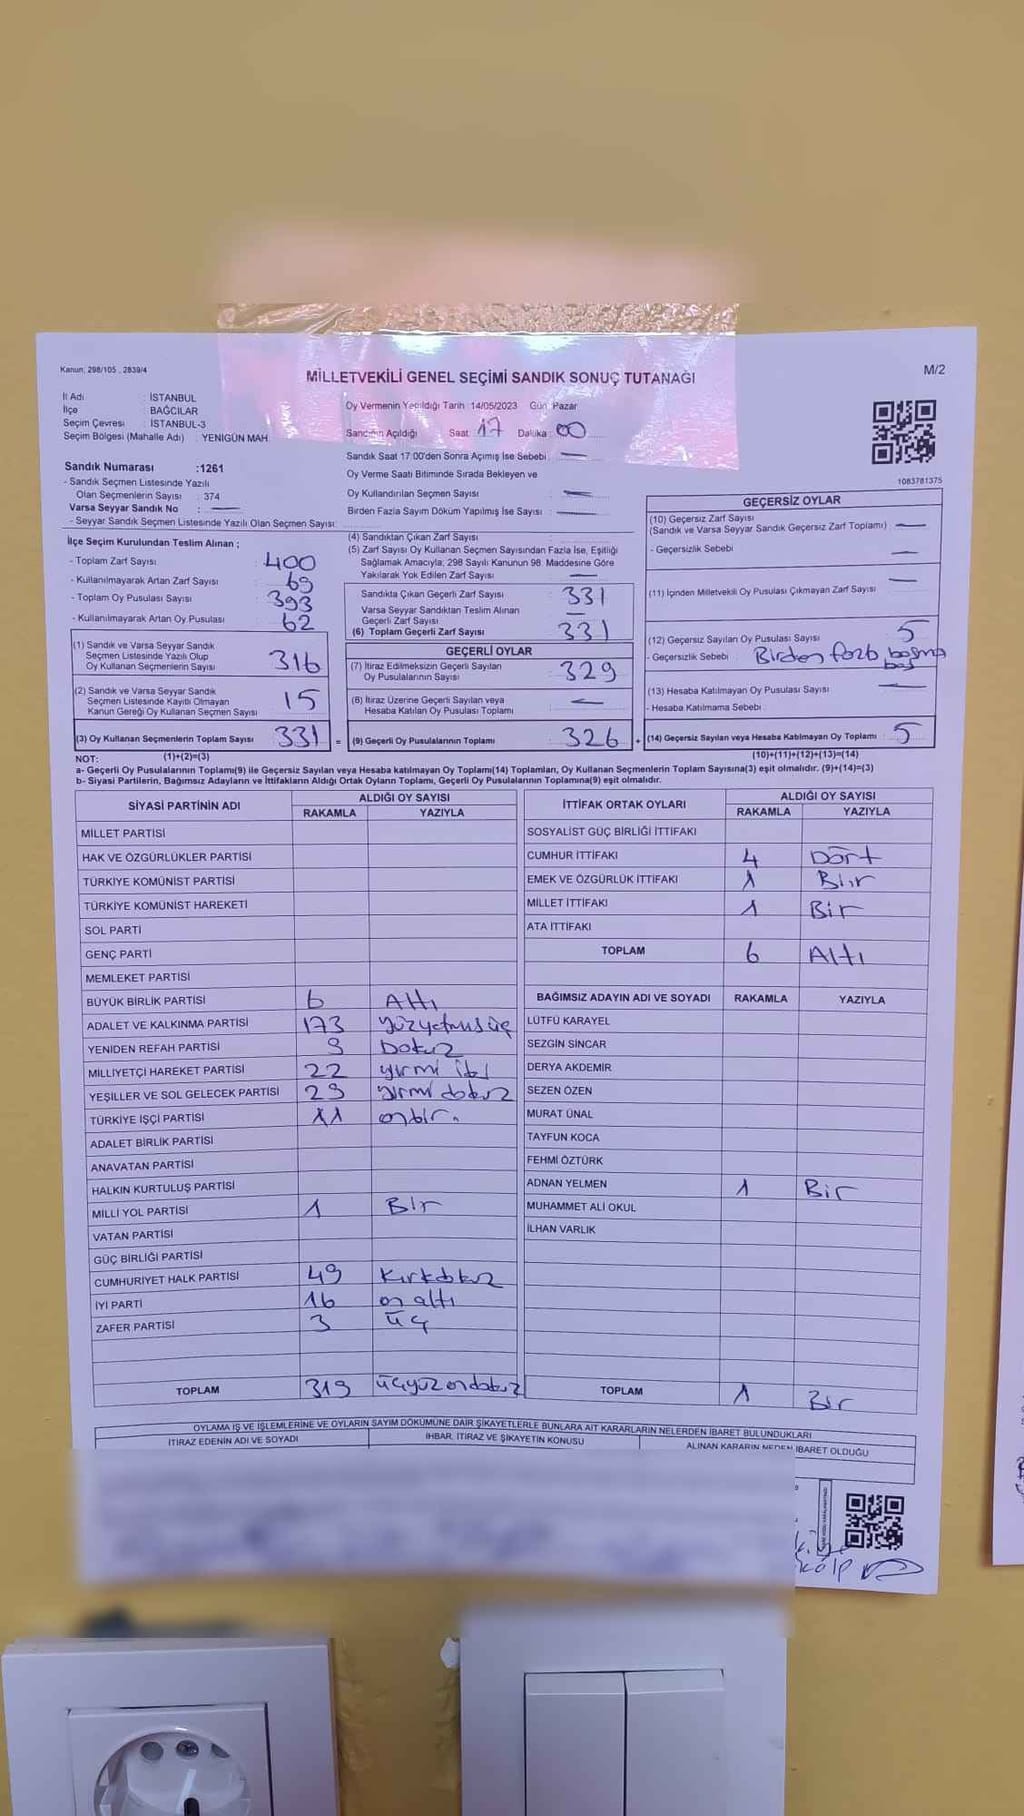 Kanun; 298/105 , 2839/4
MİLLETVEKİLİ GENEL SEÇİMİ SANDIK SONUÇ TUTANAĞI
M/2
İl Adı : İSTANBUL
İlçe : BAĞCILAR
Seçim Çevresi : İSTANBUL-3
Seçim Bölgesi (Mahalle Adı) : YENİGÜN MAH.
Oy Vermenin Yapıldığı Tarih :14/05/2023 Gün: Pazar
Sandığın Açıldığı Saat : 17 Dakika : 00
Sandık Saat 17:00'den Sonra Açımış İse Sebebi : —
Oy Verme Saati Bitiminde Sırada Bekleyen ve
Oy Kullandırılan Seçmen Sayısı : —
Birden Fazla Sayım Döküm Yapılmış İse Sayısı : —
Sandık Numarası :1261
- Sandık Seçmen Listesinde Yazılı
Olan Seçmenlerin Sayısı : 374
Varsa Seyyar Sandık No : —
- Seyyar Sandık Seçmen Listesinde Yazılı Olan Seçmen Sayısı:
1083781375
İlçe Seçim Kurulundan Teslim Alınan ;
- Toplam Zarf Sayısı : 400
- Kullanılmayarak Artan Zarf Sayısı : 69
- Toplam Oy Pusulası Sayısı : 393
- Kullanılmayarak Artan Oy Pusulası : 62
(1) Sandık ve Varsa Seyyar Sandık
Seçmen Listesinde Yazılı Olup
Oy Kullanan Seçmenlerin Sayısı : 316
(2) Sandık ve Varsa Seyyar Sandık
Seçmen Listesinde Kayıtlı Olmayan
Kanun Gereği Oy Kullanan Seçmen Sayısı : 15
(3) Oy Kullanan Seçmenlerin Toplam Sayısı : 331 =
(4) Sandıktan Çıkan Zarf Sayısı :
(5) Zarf Sayısı Oy Kullanan Seçmen Sayısından Fazla İse, Eşitliği
Sağlamak Amacıyla; 298 Sayılı Kanunun 98. Maddesine Göre
Yakılarak Yok Edilen Zarf Sayısı : —
Sandıkta Çıkan Geçerli Zarf Sayısı : 331
Varsa Seyyar Sandıktan Teslim Alınan
Geçerli Zarf Sayısı : —
(6) Toplam Geçerli Zarf Sayısı : 331
GEÇERLİ OYLAR
(7) İtiraz Edilmeksizin Geçerli Sayılan
Oy Pusulalarının Sayısı : 329
(8) İtiraz Üzerine Geçerli Sayılan veya
Hesaba Katılan Oy Pusulası Toplamı : —
(9) Geçerli Oy Pusulalarının Toplamı : 326 +
GEÇERSİZ OYLAR
(10) Geçersiz Zarf Sayısı
(Sandık ve Varsa Seyyar Sandık Geçersiz Zarf Toplamı) : —
- Geçersizlik Sebebi : —
(11) İçinden Milletvekili Oy Pusulası Çıkmayan Zarf Sayısı : —
(12) Geçersiz Sayılan Oy Pusulası Sayısı : 5
- Geçersizlik Sebebi : Birden
(13) Hesaba Katılmayan Oy Pusulası Sayısı : —
- Hesaba Katılmama Sebebi :
(14) Geçersiz Sayılan veya Hesaba Katılmayan Oy Toplamı : 5
NOT: (1)+(2)=(3) (10)+(11)+(12)+(13)=(14)
a- Geçerli Oy Pusulalarının Toplamı(9) ile Geçersiz Sayılan veya Hesaba katılmayan Oy Toplamı(14) Toplamları, Oy Kullanan Seçmenlerin Toplam Sayısına(3) eşit olmalıdır. (9)+(14)=(3)
b- Siyasi Partilerin, Bağımsız Adayların ve İttifakların Aldığı Ortak Oyların Toplamı, Geçerli Oy Pusulalarının Toplamına(9) eşit olmalıdır.
SİYASİ PARTİNİN ADI ALDIĞI OY SAYISI
RAKAMLA YAZIYLA
MİLLET PARTİSİ
HAK VE ÖZGÜRLÜKLER PARTİSİ
TÜRKİYE KOMÜNİST PARTİSİ
TÜRKİYE KOMÜNİST HAREKETİ
SOL PARTİ
GENÇ PARTİ
MEMLEKET PARTİSİ
BÜYÜK BİRLİK PARTİSİ 6 Altı
ADALET VE KALKINMA PARTİSİ 173 yüzyetmişüç
YENİDEN REFAH PARTİSİ 9 Dokuz
MİLLİYETÇİ HAREKET PARTİSİ 22 yirmi iki
YEŞİLLER VE SOL GELECEK PARTİSİ 29 yirmi dokuz
TÜRKİYE İŞÇİ PARTİSİ 11 onbir.
ADALET BİRLİK PARTİSİ
ANAVATAN PARTİSİ
HALKIN KURTULUŞ PARTİSİ
MİLLİ YOL PARTİSİ 1 Bir
VATAN PARTİSİ
GÜÇ BİRLİĞİ PARTİSİ
CUMHURİYET HALK PARTİSİ 49 Kırkdokuz
İYİ PARTİ 16 on altı
ZAFER PARTİSİ 3 üç
TOPLAM 319 üçyüzondokuz
İTTİFAK ORTAK OYLARI ALDIĞI OY SAYISI
RAKAMLA YAZIYLA
SOSYALİST GÜÇ BİRLİĞİ İTTİFAKI
CUMHUR İTTİFAKI 4 Dört
EMEK VE ÖZGÜRLÜK İTTİFAKI 1 Bir
MİLLET İTTİFAKI 1 Bir
ATA İTTİFAKI
TOPLAM 6 Altı
BAĞIMSIZ ADAYIN ADI VE SOYADI RAKAMLA YAZIYLA
LÜTFÜ KARAYEL
SEZGİN SİNCAR
DERYA AKDEMİR
SEZEN ÖZEN
MURAT ÜNAL
TAYFUN KOCA
FEHMİ ÖZTÜRK
ADNAN YELMEN 1 Bir
MUHAMMET ALİ OKUL
İLHAN VARLIK
TOPLAM 1 Bir
OYLAMA İŞ VE İŞLEMLERİNE VE OYLARIN SAYIM DÖKÜMÜNE DAİR ŞİKAYETLERLE BUNLARA AİT KARARLARIN NELERDEN İBARET BULUNDUKLARI
İTİRAZ EDENİN ADI VE SOYADI İHBAR, İTİRAZ VE ŞİKAYETİN KONUSU ALINAN KARARIN NEDEN İBARET OLDUĞU